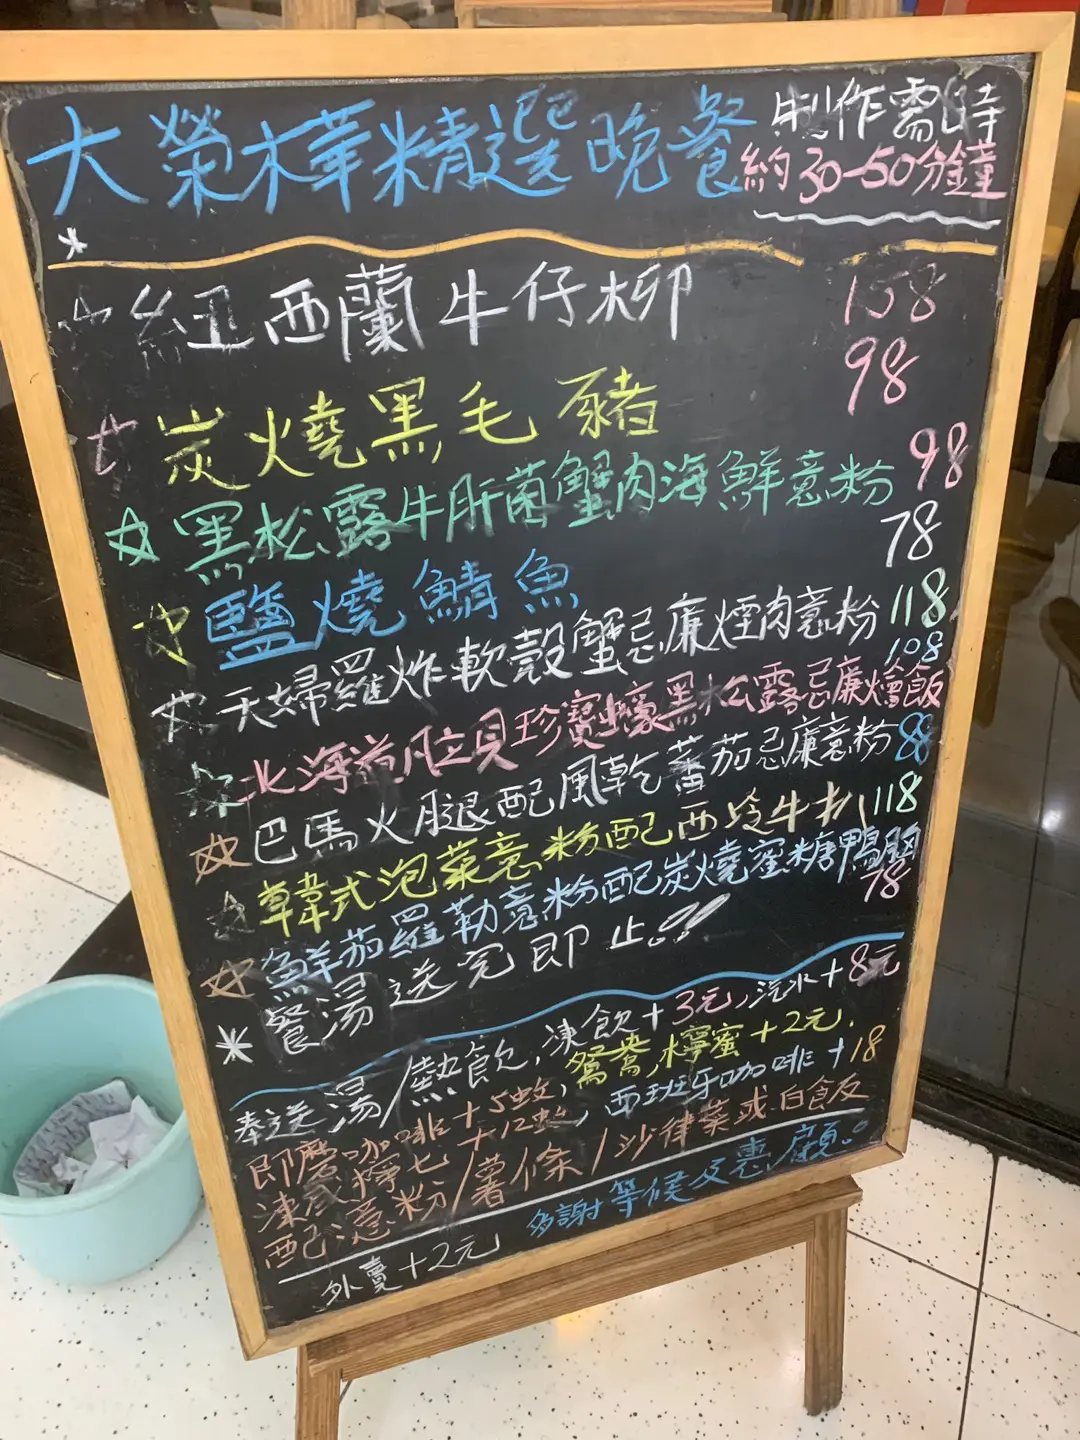 大榮華精選晚餐
制作需時
約30-50分鐘
紐西蘭牛仔柳 158
炭燒黑毛豬 98
黑松露牛肝菌蟹肉海鮮意粉 98
鹽燒鯖魚 78
天婦羅炸軟殼蟹忌廉煙肉意粉 118
北海道帶貝珍寶蠔黑松露忌廉燴飯 108
巴馬火腿配風乾蕃茄忌廉意粉 88
韓式泡菜意粉配西冷牛扒 118
鮮茄羅勒意粉配炭燒蜜糖鴨胸 78
餐湯送完即止!!
奉送湯/熱飲,凍飲+3元,汽水+8元
即磨咖啡+5蚊,鴛鴦,檸蜜+2元.
凍咸檸七+12蚊,西班牙咖啡+18
配意粉/薯條/沙律菜或白食反
多謝等候及惠顧。
外賣+2元